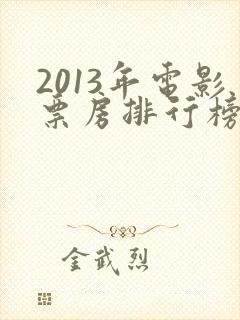 2013年電影
票房排行榜
金武烈